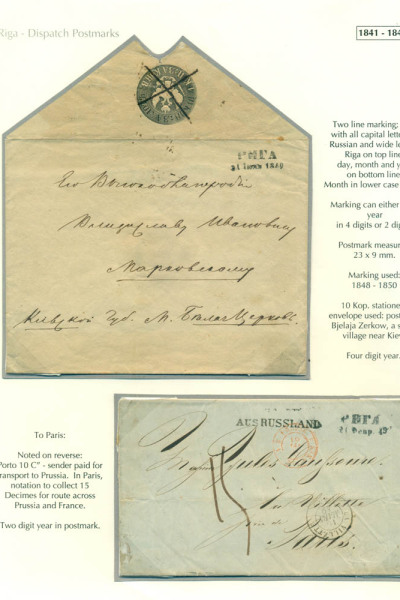 Riga - Dispatch Postmarks
1841 - 184
Two line marking:
with all capital lette
Russian and wide le
Riga on top line
day, month and y
on bottom line
Month in lower case
Marking can either
year
in 4 digits or 2 dig
Postmark measur
23 x 9 mm.
Marking used:
1848 - 1850
10 Kop. statione
envelope used: post
Bjelaja Zerkow, a s
village near Kie
Four digit year.
РИГА
Его Высокоблагородію
Владиславу Ивановичу
Марковскому
Кіевской Губ. М. Бѣлая Церковь.
To Paris:
Noted on reverse:
Porto 10 C" - sender paid for
ransport to Prussia. In Paris,
notation to collect 15
Decimes for route across
Prussia and France.
Two digit year in postmark.
AUS RUSSLAND
РИГА
Jules
15
Paris